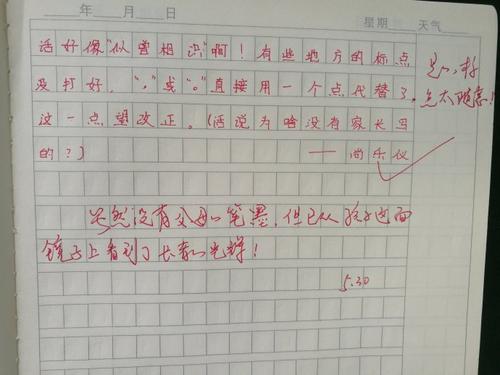 年 月 日 星期 天气
话好像“似曾相识”啊！有些地方的标点
没打好，“，”或“。”直接用一个点代替了，
这一点望改正。（话说为啥没有家长写
的？）
——尚乐仪
是，标
点太随意！
虽然没有父母的笔墨，但已从孩子这面
镜子上看到了长者的光辉！
5.30